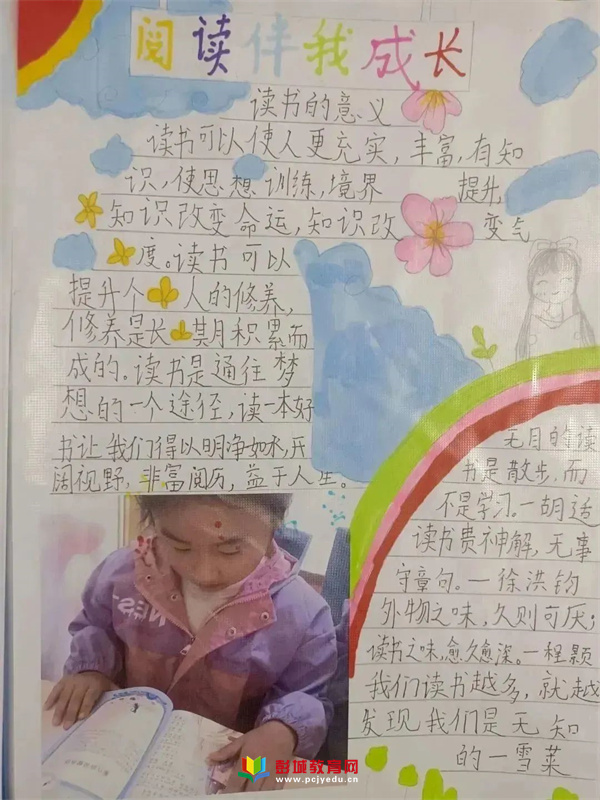 阅读伴我成长
读书的意义
读书可以使人更充实,丰富,有知
识,使思想训练,境界 提升,
知识改变命运,知识改 变气
度。读书可以
提升个人的修养,
修养是长期积累而
成的。读书是通往梦
想的一个途径,读一本好
书让我们得以明净如水,开
阔视野,非富阅历,益于人生。
无目的读
书是散步,而
不是学习。一胡适
读书贵神解,无事
守章句。一徐洪钧
外物之味,久则可厌;
读书之味,愈久愈深。一程颢
我们读书越多,就越
发现我们是无知
的一雪莱
彭城教育网
www.pcjyedu.cn